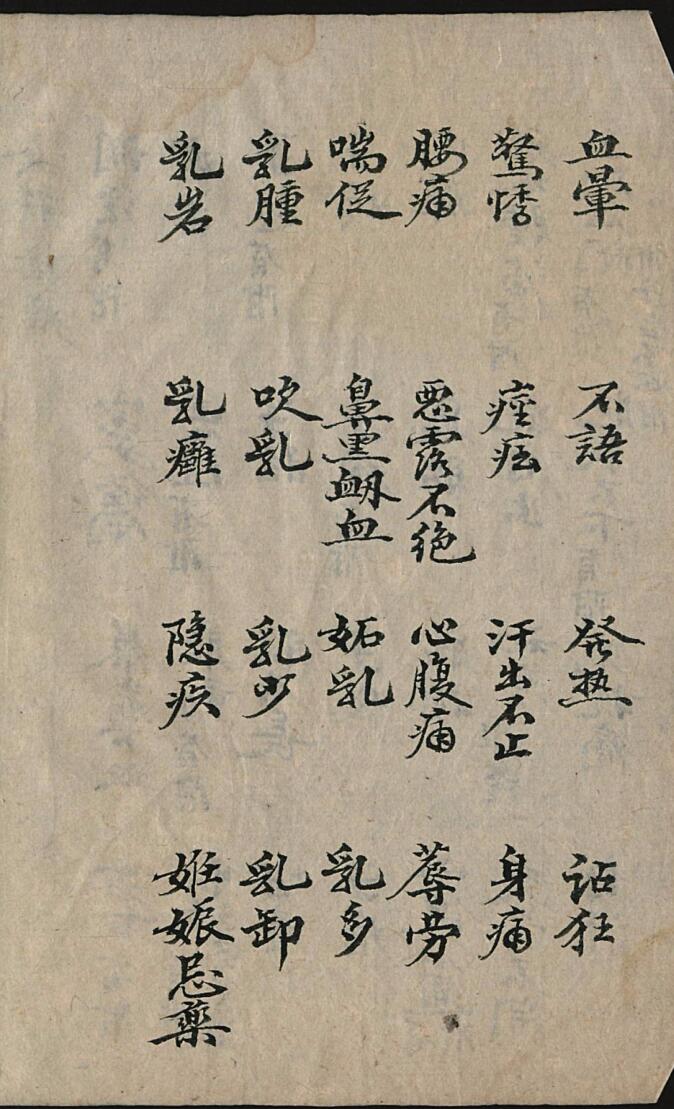 血暈 不語 發热 詀狂
驚悸 痙痃 汗出不止 身痛
腰痛 惡露不绝 心腹痛 蓐劳
喘促 鼻黑衄血 妬乳 乳多
乳腫 吹乳 乳少 乳卸
乳岩 乳癰 隠疾 姙娠忌藥